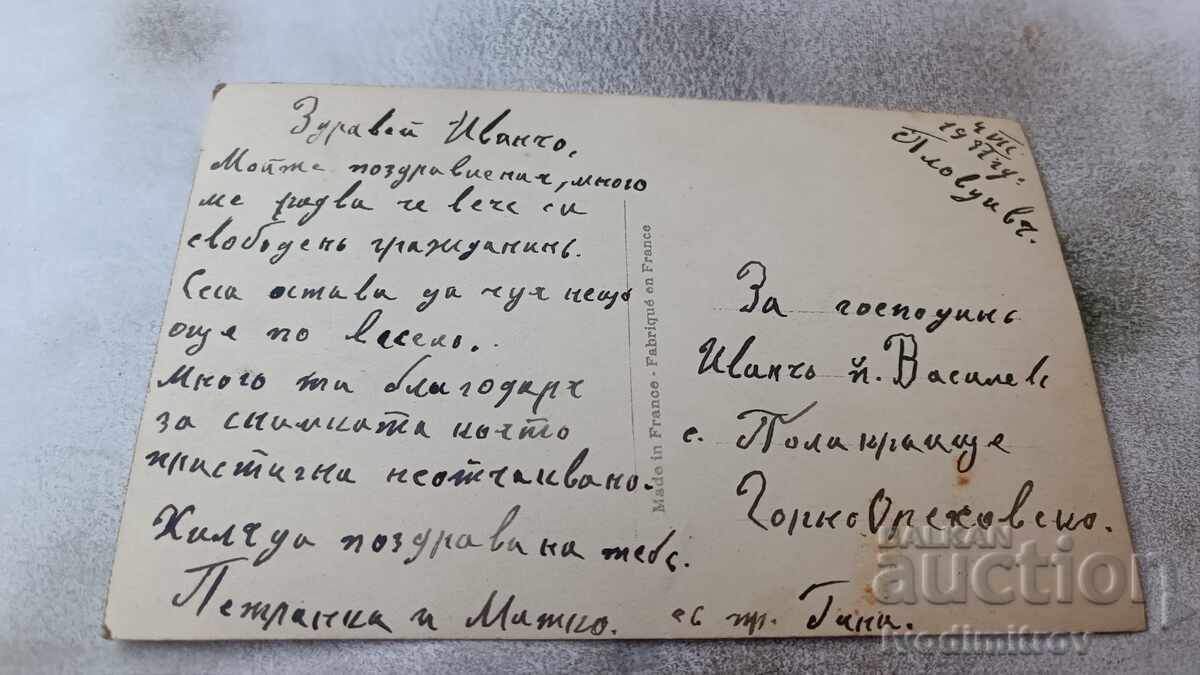 Здравей Иванчо,
Мойте поздравления, много
ме радва че вече си
свободенъ гражданинъ.
Сега остава да чуя нещо
още по весело.
Много ти благодаря
за снимката която
пристигна неочаквано.
Хиляда поздрава на тебе.
Петранка и Митко. съ пр. Гина.
Made in France - Fabriqué en France
4 VIII
19 год.
Пловдивъ.
За господинъ
Иванчо П. Василевъ
с. Поликраище
Горно Ореховско.
БАЛКАН
auction
ivodimitrov